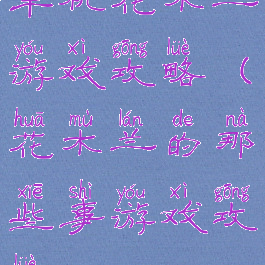 单机花木兰
yóu xì gōng lüè
游戏攻略(
huā mù lán de nà
花木兰的那
xiē shì yóu xì gōng
些事游戏攻
lüè